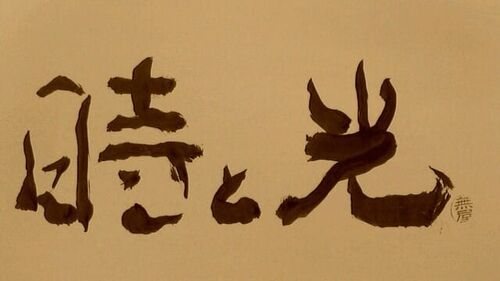 時と光